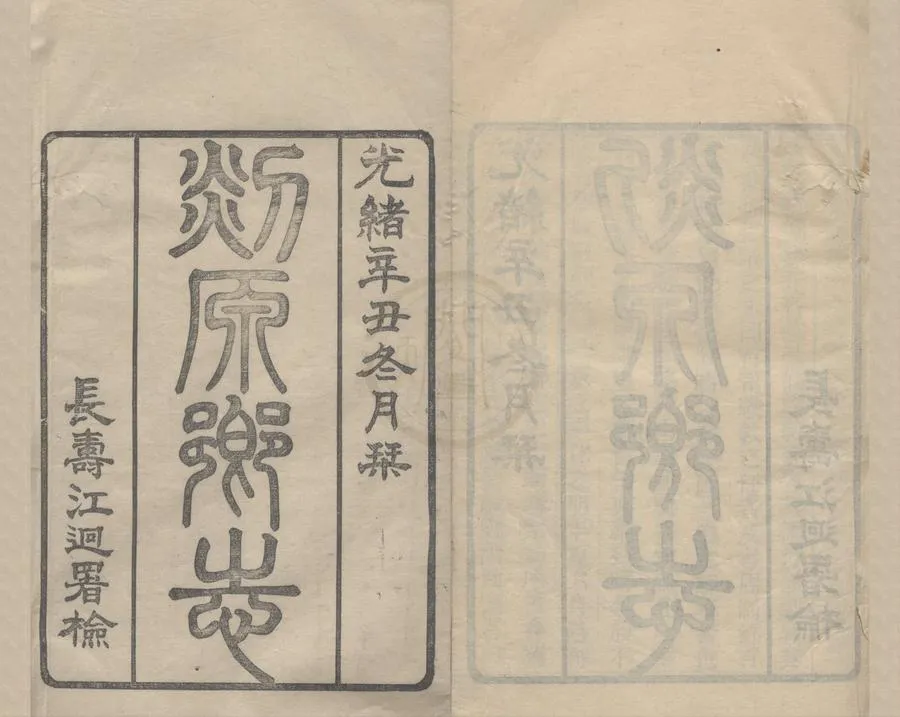 光緒辛丑冬月栞
剡原鄉志
長壽江迥署檢